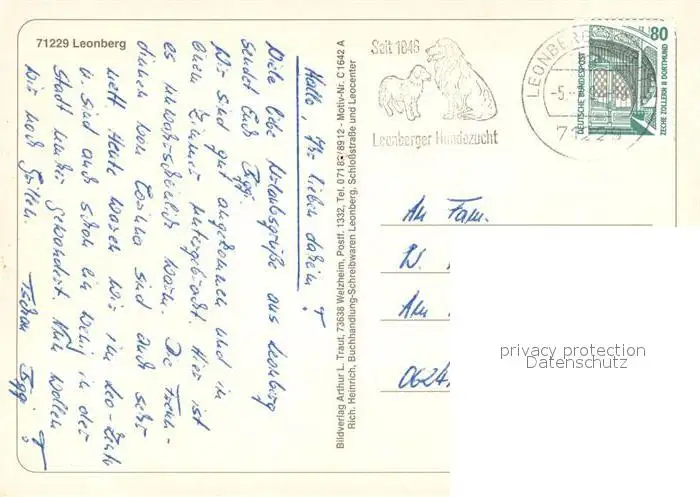 71229 Leonberg
Hallo, Ihr lieben daheim!
Viele liebe Urlaubsgrüße aus Leonberg
sendet Euch Iggi.
Wir sind gut angekommen und in
einem Zimmer untergebracht. Hier ist
es unwahrscheinlich warm. Die Freun-
dinnen von Corinna sind auch sehr
nett. Heute waren wir im Leo-Center
u. sind auch schon ein wenig in der
Stadt umher gewandert. Nun wollen
wir noch Grillen.
Tschau Iggi!
Bildverlag Arthur L. Traut, 73638 Welzheim, Postf. 1332, Tel. 07182/8912 - Motiv-Nr. C1642 A
Rich. Heinrich, Buchhandlung-Schreibwaren Leonberg, Schloßstraße und Leocenter
Seit 1846
Leonberger Hundezucht
LEONBERG
-5.
71229
80
DEUTSCHE BUNDESPOST
ZECHE ZOLLERN II DORTMUND
An Fam.
W.
Am
0624
privacy protection
Datenschutz